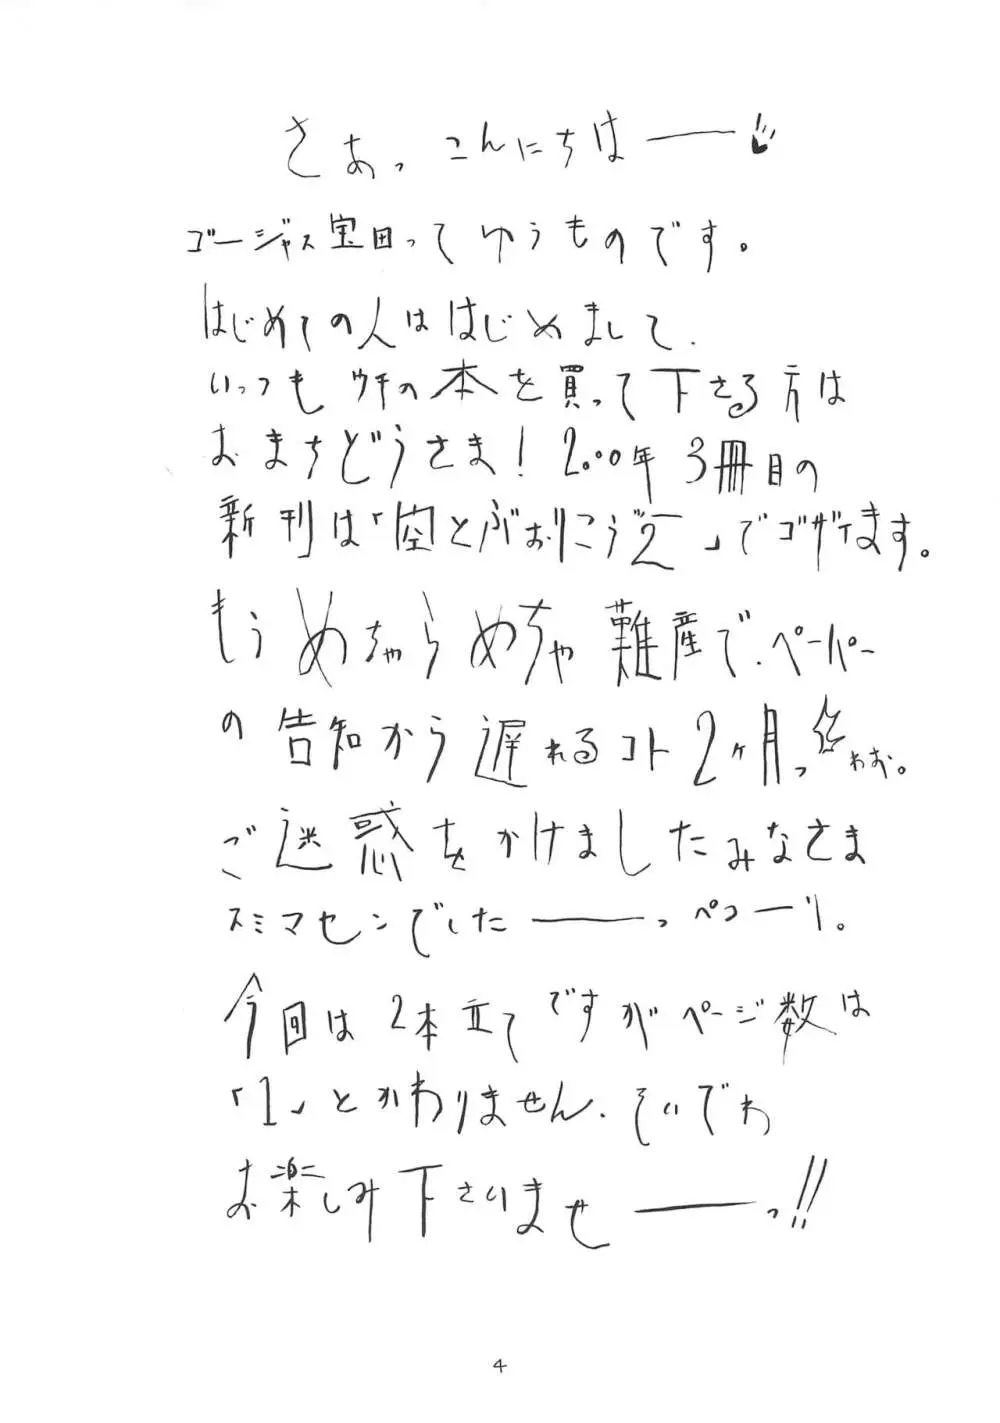 さあっ こんにちはー
ゴージャス宝田ってゆうものです。
はじめての人ははじめまして、
いっつもウチの本を買って下さる方は
おまちどうさま！2000年3冊目の
新刊は「空とぶおりこう2」でゴザイます。
もうめちゃらめちゃ難産で、ペーパー
の告知から遅れるコト2ヶ月っ わお。
ご迷惑をかけましたみなさま
スミマセンでしたーっ ペコーリ。
今回は2本立てですがページ数は
「1」とかわりません、そいでわ
お楽しみ下さいませーっ!!
4